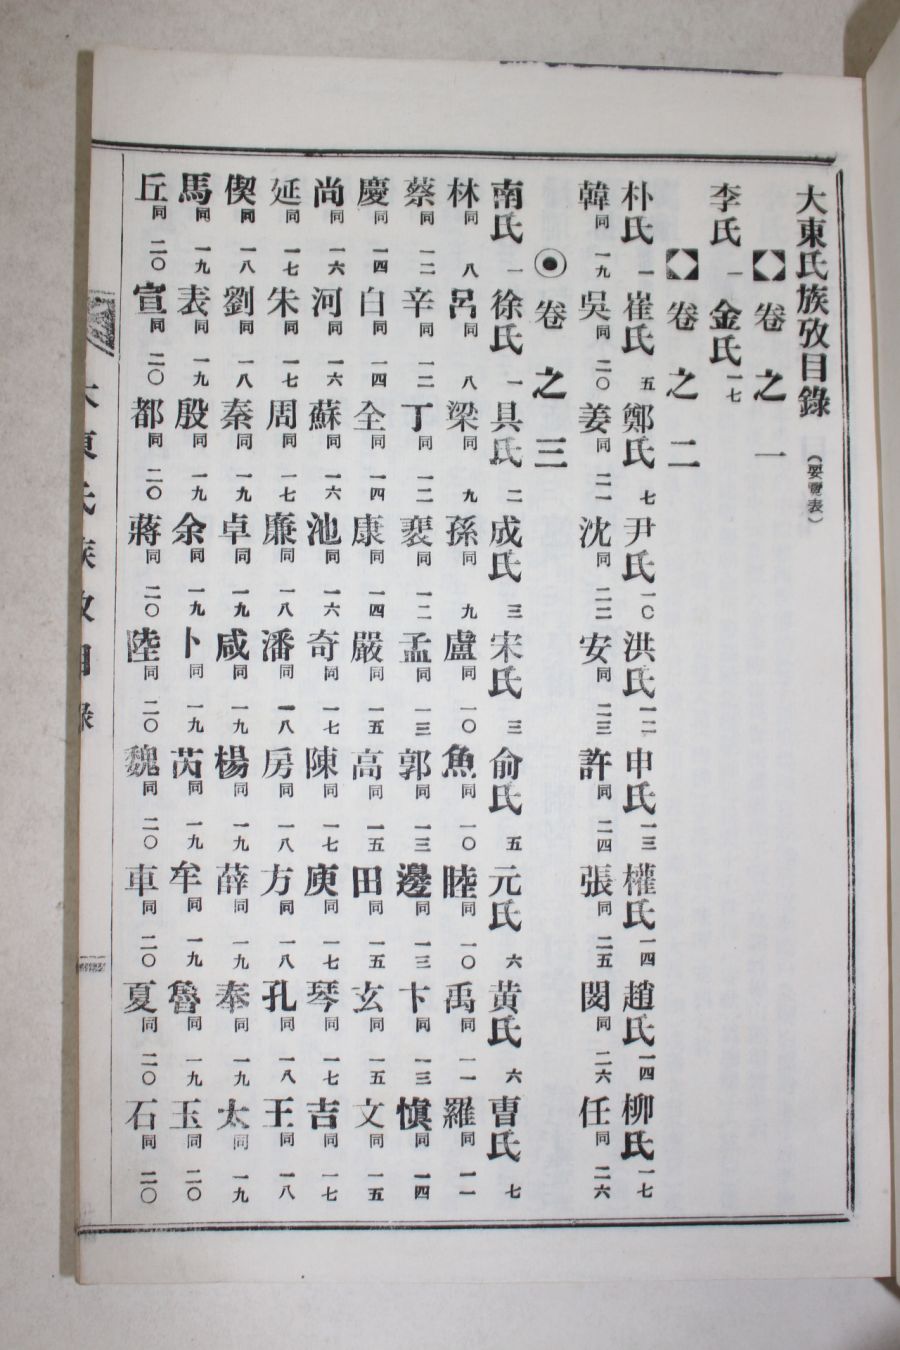 大東氏族攷目錄 (要覽表)
卷之一
李氏 一 金氏 一七
卷之二
朴氏 一 崔氏 五 鄭氏 七 尹氏 一〇 洪氏 一二 申氏 一三 權氏 一四 趙氏 一四 柳氏 一七
韓同 一九 吳同 二〇 姜同 二一 沈同 二二 安同 二三 許同 二四 張同 二五 閔同 二六 任同 二六
卷之三
南氏 一 徐氏 一 具氏 二 成氏 三 宋氏 三 俞氏 五 元氏 六 黃氏 六 曺氏 七
林同 八 呂同 八 梁同 九 孫同 九 盧同 一〇 魚同 一〇 睦同 一〇 禹同 一一 羅同 一一
蔡同 一二 辛同 一二 丁同 一二 裵同 一二 孟同 一三 郭同 一三 邊同 一三 卞同 一三 愼同 一四
慶同 一四 白同 一四 全同 一四 康同 一四 嚴同 一五 高同 一五 田同 一五 玄同 一五 文同 一五
尚同 一六 河同 一六 蘇同 一六 池同 一六 奇同 一七 陳同 一七 庾同 一七 琴同 一七 吉同 一七
延同 一七 朱同 一七 周同 一七 廉同 一八 潘同 一八 房同 一八 方同 一八 孔同 一八 王同 一八
偰同 一八 劉同 一八 秦同 一九 卓同 一九 咸同 一九 楊同 一九 薛同 一九 奉同 一九 太同 一九
馬同 一九 表同 一九 殷同 一九 余同 一九 卜同 一九 芮同 一九 牟同 一九 魯同 一九 玉同 二〇
丘同 二〇 宣同 二〇 都同 二〇 蔣同 二〇 陸同 二〇 魏同 二〇 車同 二〇 夏同 二〇 石同 二〇
大東氏族攷目錄